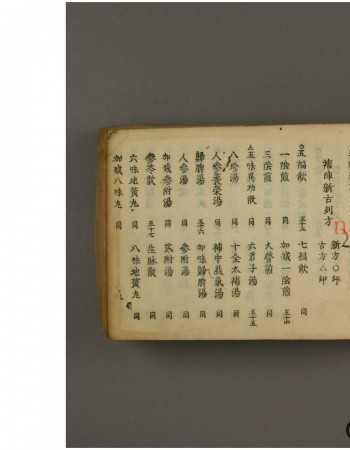 補陣新古列方
新方〇印
古方△印
五福飲 五十三 七福飲 同
一陰煎 同 加減一陰煎 五十四
三陰煎 同 大營煎 同
五味異功散 同 六君子湯 五十五
八珍湯 同 十全大補湯 同
人參養榮湯 同 補中益氣湯 同
歸脾湯 五十六 加味歸脾湯 同
人參湯 同 參附湯 同
加減參附湯 同 茋附湯 同
參朮散 五十七 生脉散 同
六味地黃丸 同 八味地黃丸 同
加減八味丸 同